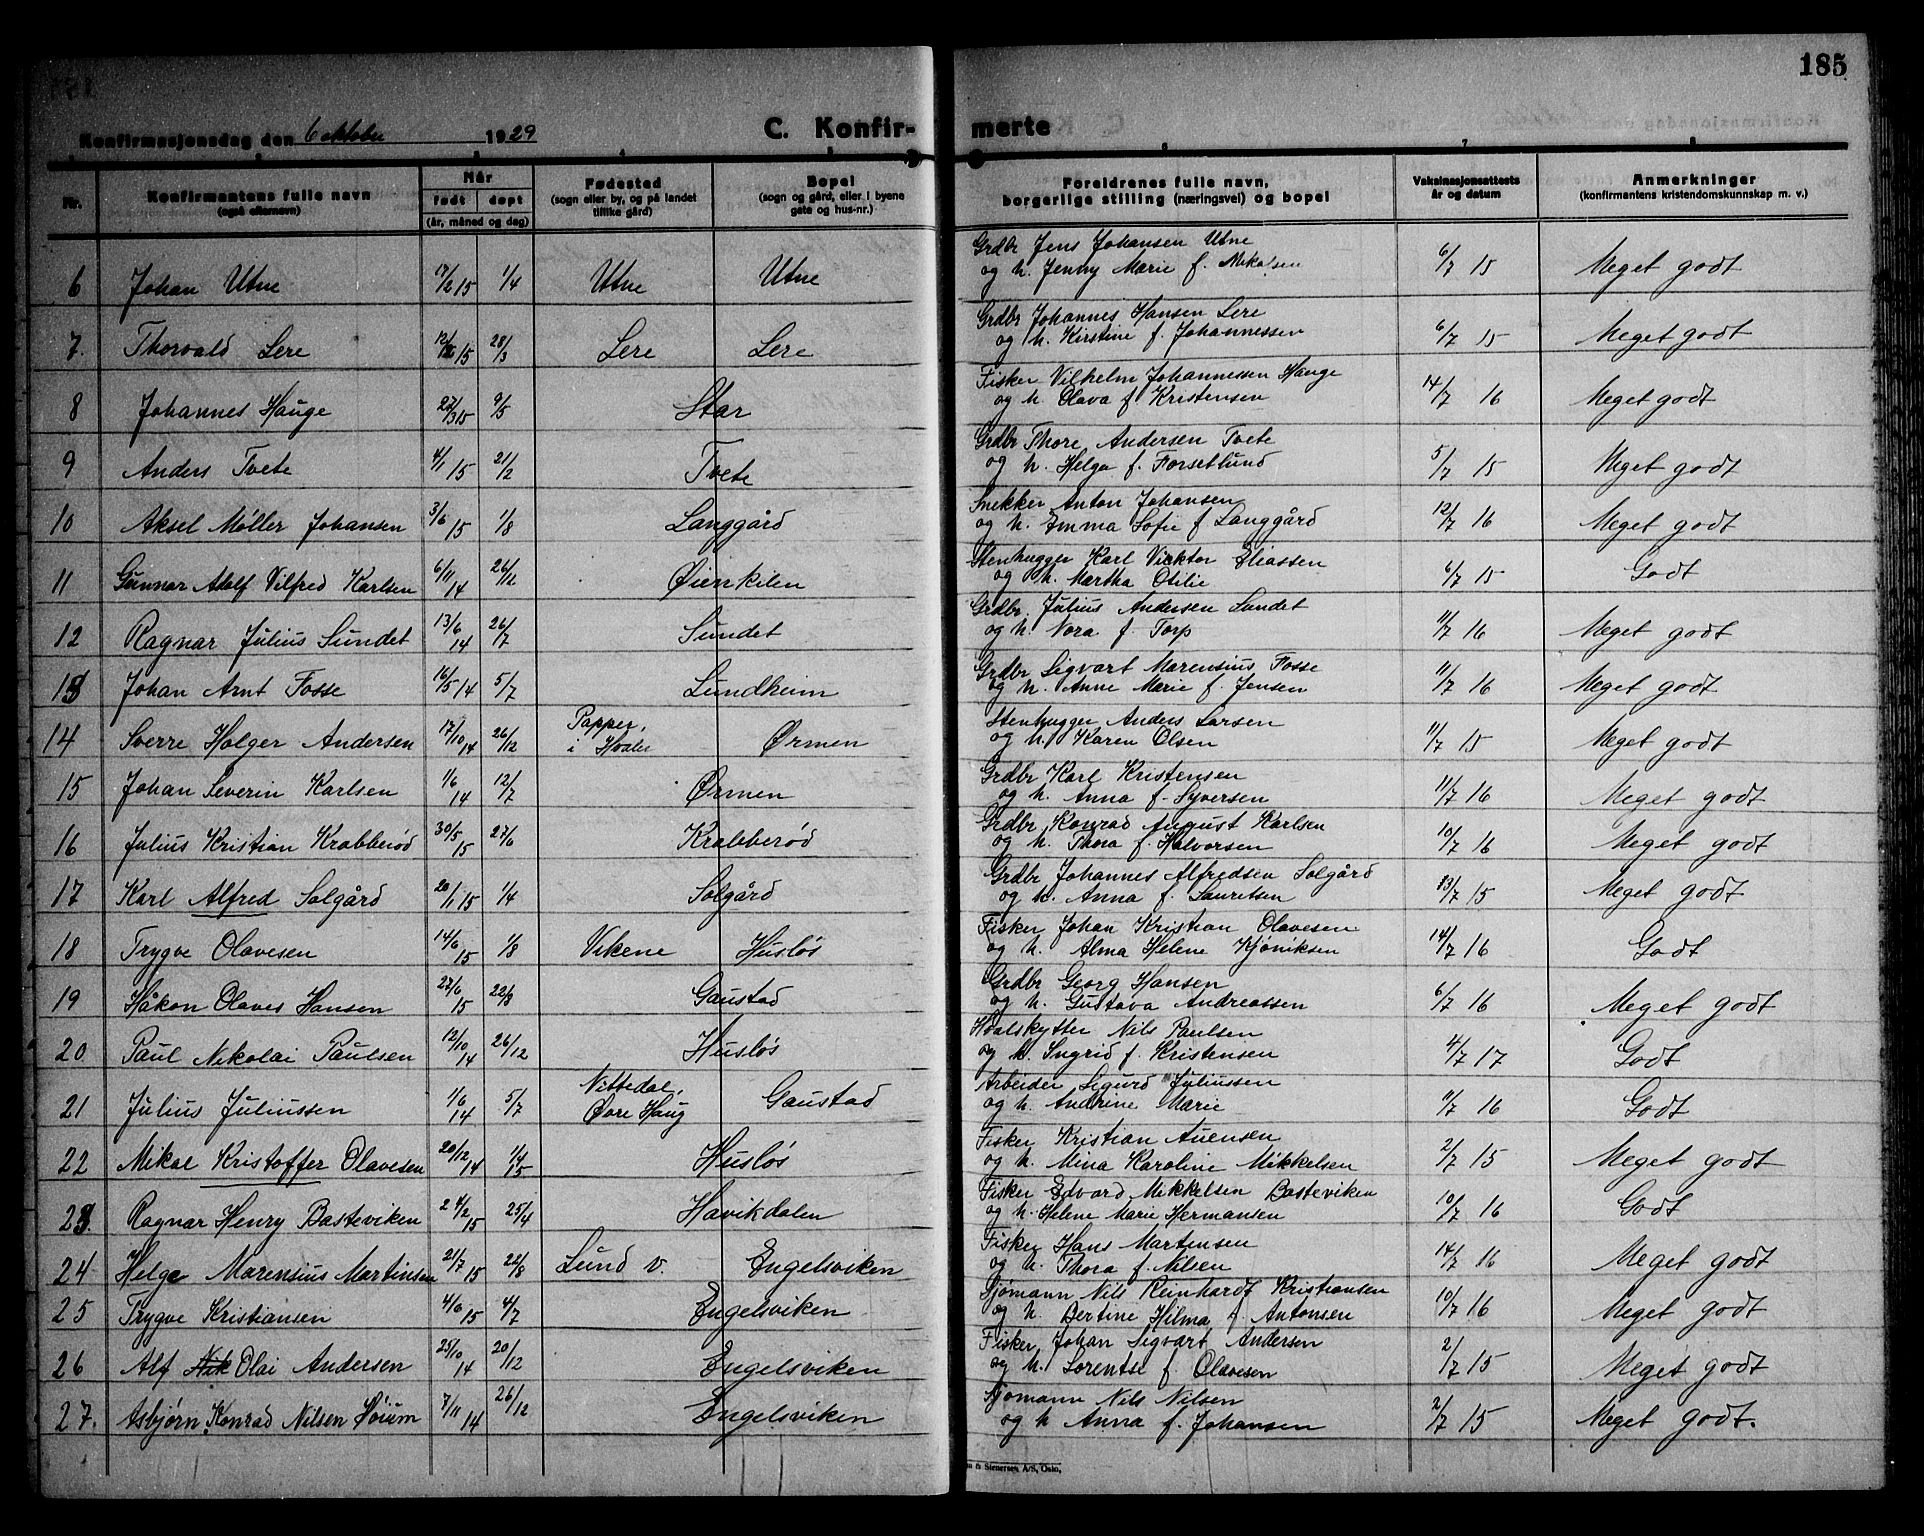 185
Konfirmasjonsdag den 6 oktober 1929
C. Konfirmerte
Nr.
Konfirmantens fulle navn
(også efternavn)
Når
født
døpt
(år, måned og dag)
Fødested
(sogn eller by, og på landet
tillike gård)
Bopel
(sogn og gård, eller i byene
gate og hus-nr.)
Foreldrenes fulle navn,
borgerlige stilling (næringsvei) og bopel
Vaksinasjonsattests
år og datum
Anmerkninger
(konfirmantens kristendomskunnskap m. v.)
Grdbr Jens Johansen Utne
6 Johan Utne 17/2 15 1/4 Utne Utne og h. Jenny Marie f. Mikalsen 6/7 15 Meget godt
Grdbr Johannes Hansen Lere
7. Thorvald Lere 15 28/3 Lere Lere og h. Kirstine f. Johannessen 6/7 15 Meget godt
Fisker Vilhelm Johannessen Hauge
8 Johannes Hauge 27/3 15 9/5 Star og h. Olava f Kristensen 14/7 16 Meget godt
Grdbr Thore Andersen Tvete
9 Anders Tvete 4/1 15 21/2 Tvete og h. Helga f. Forsetlund 5/7 15 Meget godt
Snekker Anton Johansen
10 Aksel Møller Johansen 3/6 15 1/8 Langgård og h. Emma Sofie f Langgård 12/7 16 Meget godt
Stenhugger Karl Vicktor Eliassen
11 Gunnar Adolf Vilfred Karlsen 6/11 14 26/12 Øienkilen og h. Martha Otilie 6/7 15 Godt
Grdbr. Julius Andersen Sundet
12 Ragnar Julius Sundet 13/6 14 26/7 Sundet og h. Nora f. Torp 11/7 16 Meget godt
Grdbr Sigvart Marensius Fosse
13 Johan Arnt Fosse 16/5 14 5/7 Lundheim og h. Anne Marie f. Jensen 11/7 16 Meget godt
Stenhugger Anders Larsen
14 Sverre Holger Andersen 17/10 14 26/12 Papper, i Hvaler Ørmen og h. Karen Olsen 11/7 15 Meget godt
Grdbr Karl Kristensen
15 Johan Severin Karlsen 1/6 14 12/7 Ørmen og h. Anna f. Syversen 11/7 16 Meget godt
Grdbr Konrad August Karlsen
16 Julius Kristian Krabberød 30/5 15 27/6 Krabberød og h. Thora f. Halvorsen 10/7 16 Meget godt
Grdbr Johannes Alfredsen Solgård
17 Karl Alfred Solgård 20/1 15 1/4 Solgård og h. Anna f. Lauritsen 15 Meget godt
Fisker Johan Kristian Olavesen
18 Trygve Olavesen 14/6 15 1/8 Vikene Husløs og h. Alma Helene Kjøniksen 14/7 16 Godt
Grdbr Georg Hansen
19 Håkon Olaves Hansen 27/6 15 Gaustad og h. Gustava Andreassen 6/7 16 Meget godt
Hvalskytter Nils Paulsen
20 Paul Nikolai Paulsen 12/10 14 26/12 Husløs og h. Ingrid f. Kristensen 4/7 17 Godt
Arbeider Sigurd Juliussen
21 Julius Juliussen 1/6 14 5/7 Nittedal, Øvre Haug Gaustad og h. Andrine Marie 11/7 16 Godt
Fisker Kristian Auensen
22 Mikal Kristoffer Olavesen 20/12 14 1/4 15 Husløs og h. Mina Karoline Mikkelsen 2/7 15 Meget godt
Fisker Edvard Mikkelsen Basteviken
23. Ragnar Henry Basteviken 24/2 15 25/4 Havikdalen og h. Helene Marie Hermansen 10/7 16 Godt
Fisker Hans Martensen
24 Helge Marensius Martinsen 21/7 15 22/8 Lund v. Engelsviken og h. Thora f. Nilsen 14/7 16 Meget godt
Sjømann Nils Reinhardt Kristiansen
25 Trygve Kristiansen 4/6 15 4/7 Engelsviken og h. Bertine Hilma f. Antonsen 10/7 16 Meget godt
Fisker Johan Sigvart Andersen
26 Alf Nik Olai Andersen 25/10 14 20/12 Engelsviken og h. Lorentse f. Olavesen 2/7 15 Meget godt
Sjømann Nils Nilsen
27. Asbjørn Konrad Nilsen Øium 7/11 14 26/12 Engelsviken og h Anna f. Johansen 2/7 15 Meget godt.
& Stenersen A/S, Oslo.